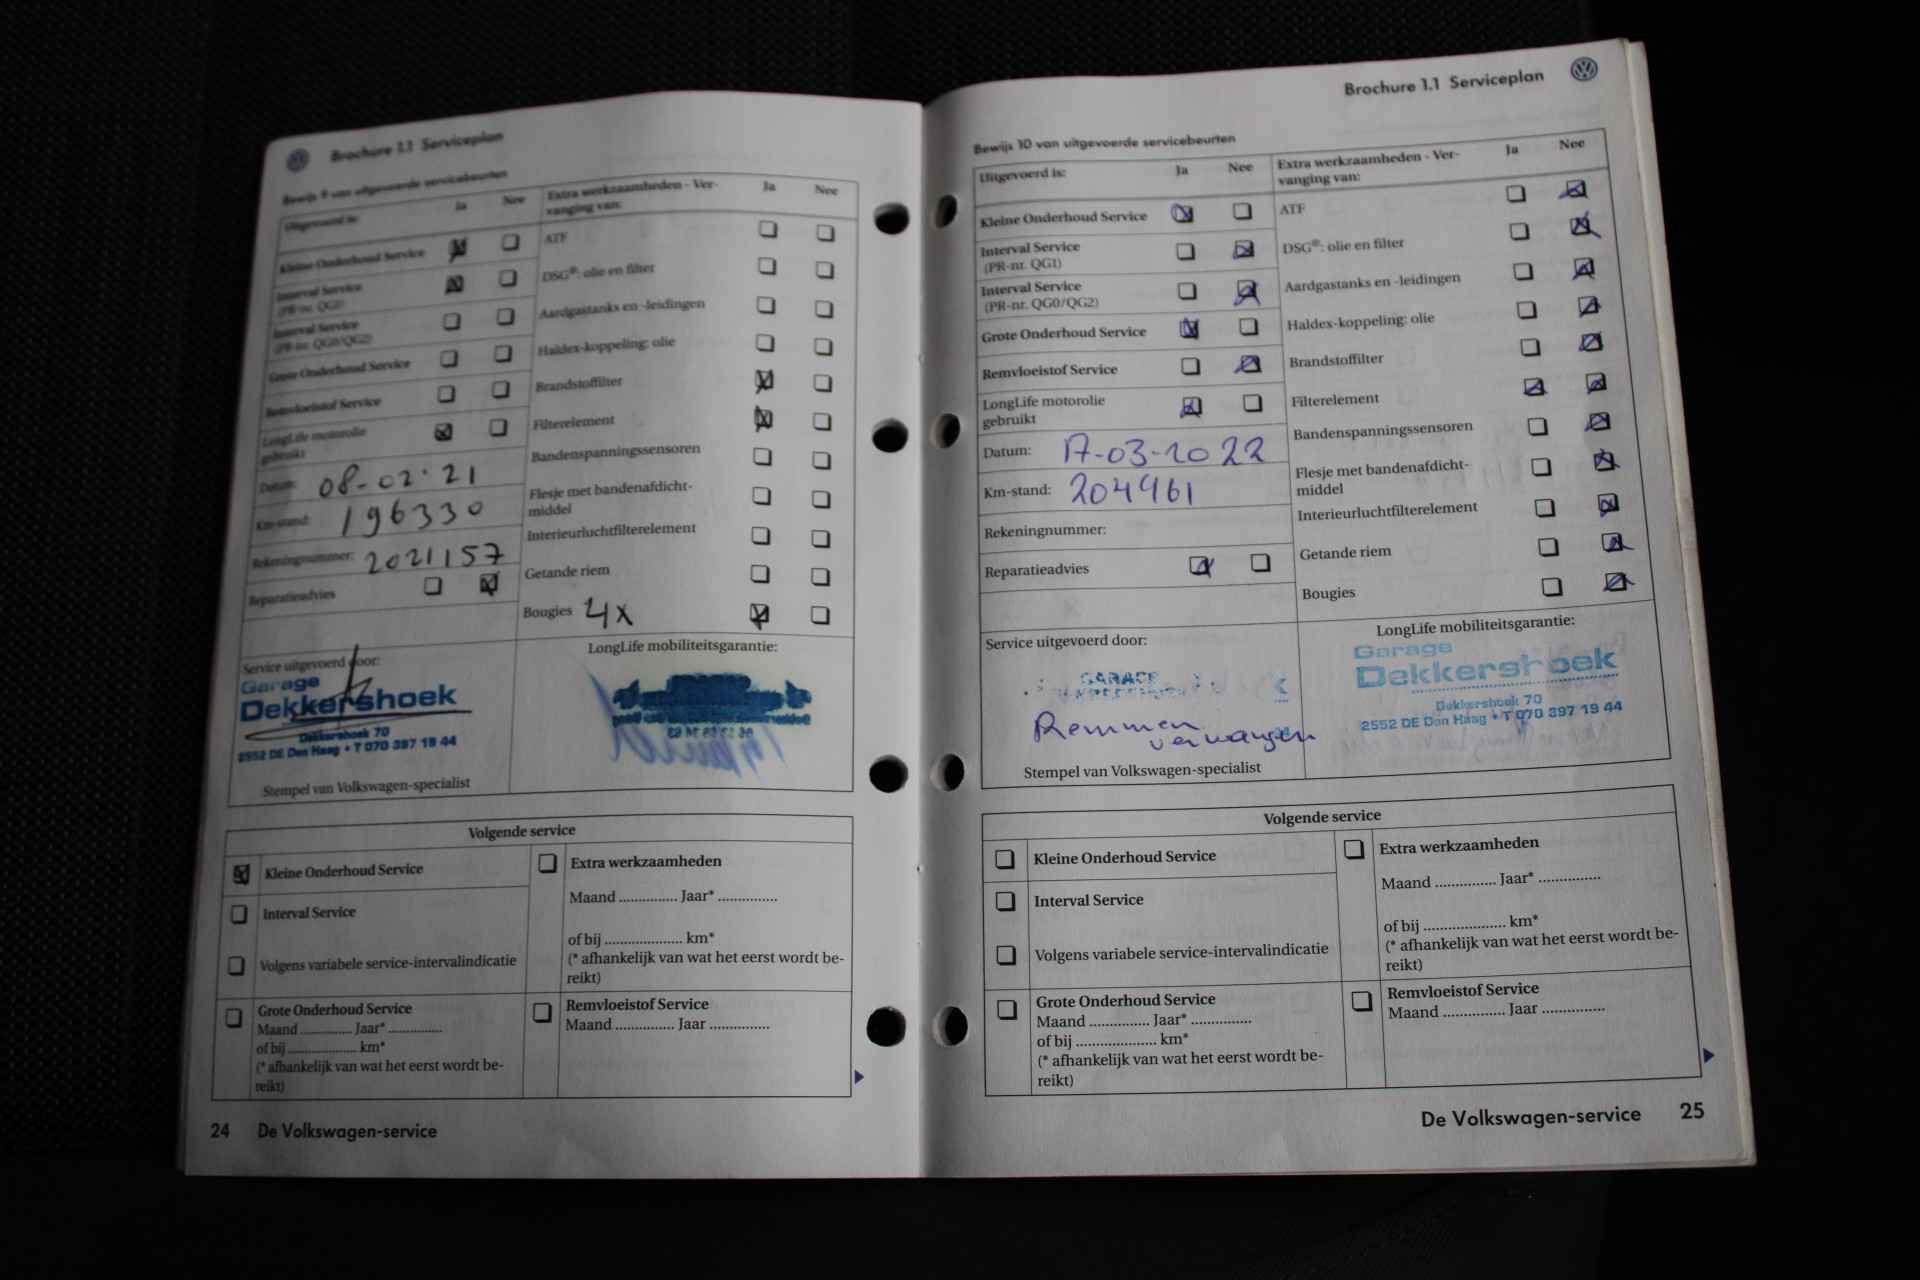 Brochure 1.1 Serviceplan
Bewijs 9 van uitgevoerde servicebeurten
Uitgevoerd is: Ja Nee
Kleine Onderhoud Service
Interval Service
(PR-nr. QG1)
Interval Service
(PR-nr. QG0/QG2)
Grote Onderhoud Service
Remvloeistof Service
LongLife motorolie
gebruikt
Datum: 08-02-21
Km-stand: 196330
Rekeningnummer: 2021157
Reparatieadvies
Extra werkzaamheden - Ver-
vanging van: Ja Nee
ATF
DSG®: olie en filter
Aardgastanks en -leidingen
Haldex-koppeling: olie
Brandstoffilter
Filterelement
Bandenspanningssensoren
Flesje met bandenafdicht-
middel
Interieurluchtfilterelement
Getande riem
Bougies 4x
Service uitgevoerd door:
Garage
Dekkershoek
Dekkershoek 70
2552 DE Den Haag • T 070 397 19 44
Stempel van Volkswagen-specialist
LongLife mobiliteitsgarantie:
Volgende service
Kleine Onderhoud Service
Interval Service
Volgens variabele service-intervalindicatie
Grote Onderhoud Service
Maand .............. Jaar* ..............
of bij .................... km*
(* afhankelijk van wat het eerst wordt be-
reikt)
Extra werkzaamheden
Maand ............... Jaar* ...............
of bij .................... km*
(* afhankelijk van wat het eerst wordt be-
reikt)
Remvloeistof Service
Maand ............... Jaar ...............
24 De Volkswagen-service
Brochure 1.1 Serviceplan
Bewijs 10 van uitgevoerde servicebeurten
Uitgevoerd is: Ja Nee
Kleine Onderhoud Service
Interval Service
(PR-nr. QG1)
Interval Service
(PR-nr. QG0/QG2)
Grote Onderhoud Service
Remvloeistof Service
LongLife motorolie
gebruikt
Datum: 17-03-2022
Km-stand: 204961
Rekeningnummer:
Reparatieadvies
Extra werkzaamheden - Ver-
vanging van: Ja Nee
ATF
DSG®: olie en filter
Aardgastanks en -leidingen
Haldex-koppeling: olie
Brandstoffilter
Filterelement
Bandenspanningssensoren
Flesje met bandenafdicht-
middel
Interieurluchtfilterelement
Getande riem
Bougies
Service uitgevoerd door:
GARAGE
Remmen
vervangen
Stempel van Volkswagen-specialist
LongLife mobiliteitsgarantie:
Garage
Dekkershoek
Dekkershoek 70
2552 DE Den Haag • T 070 397 19 44
Volgende service
Kleine Onderhoud Service
Interval Service
Volgens variabele service-intervalindicatie
Grote Onderhoud Service
Maand ............... Jaar* ...............
of bij .................... km*
(* afhankelijk van wat het eerst wordt be-
reikt)
Extra werkzaamheden
Maand ............... Jaar* ...............
of bij .................... km*
(* afhankelijk van wat het eerst wordt be-
reikt)
Remvloeistof Service
Maand ............... Jaar ...............
De Volkswagen-service 25